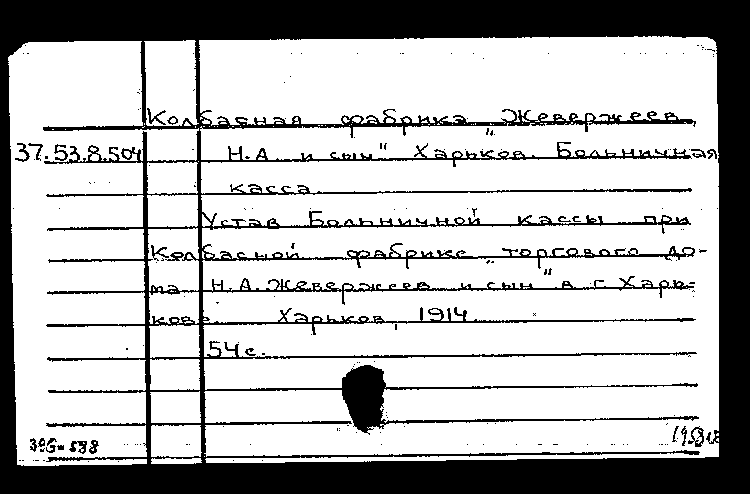 Колбасная фабрика „Жевержеев
37.53.8.504 Н.А. и сын" Харьков. Больничная
касса.
Устав Больничной кассы при
Колбасной фабрике „торгового до-
ма Н.А. Жевержеев и сын" в г. Харь-
кове. Харьков, 1914.
54 с.